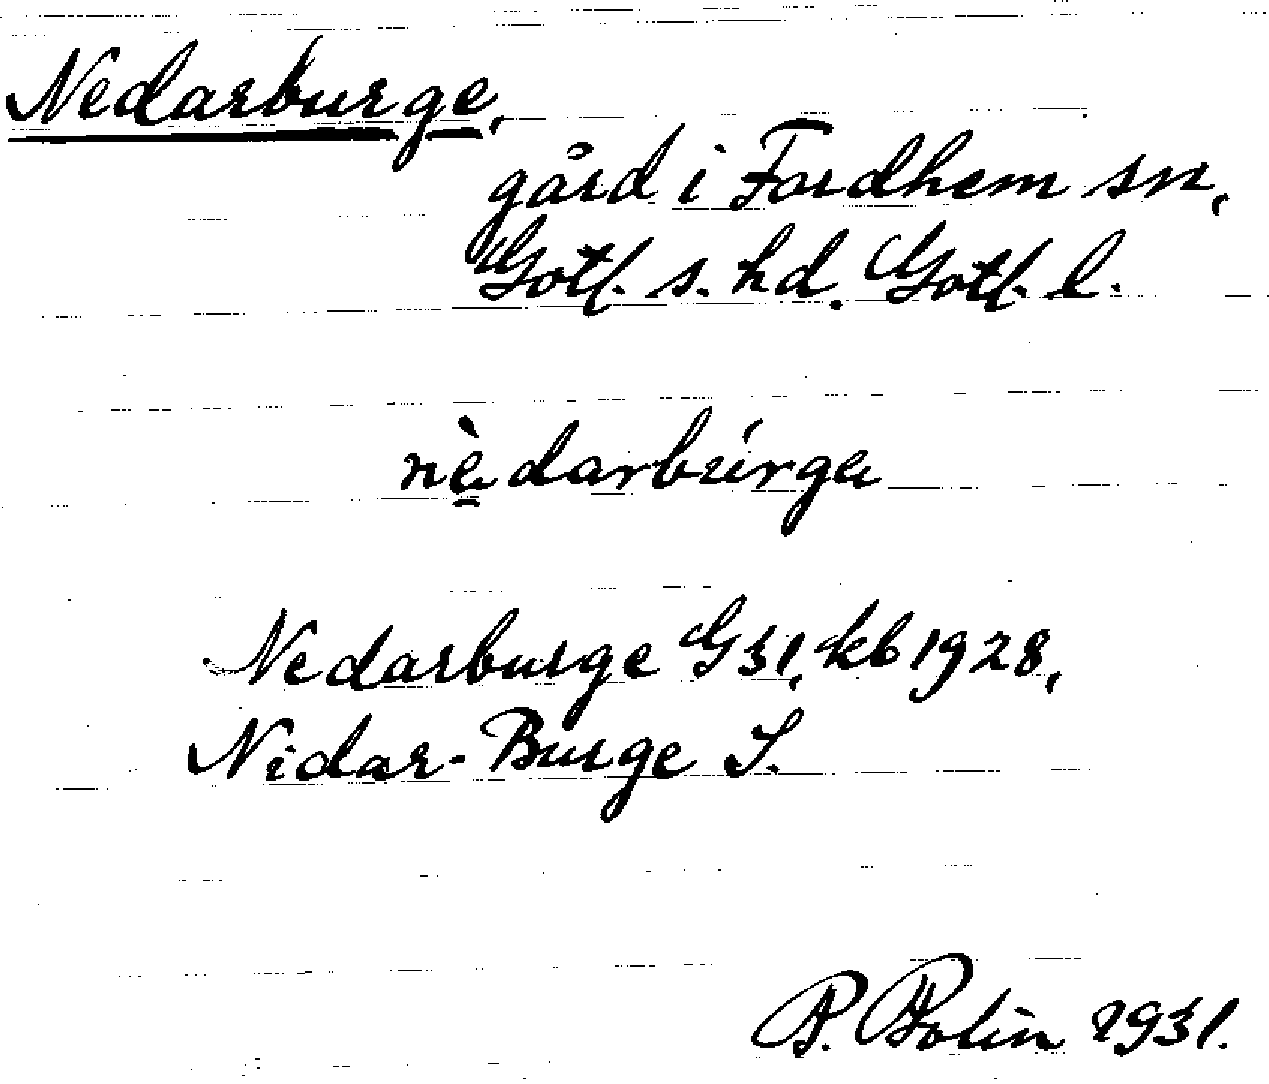 Nedarburge,
gård i Fardhem sn,
Gotl. s. hd. Gotl. l.
nèdarbúrga
Nedarburge G31, kb 1928,
Nidar-Burge S.
P. Bolin 1931.